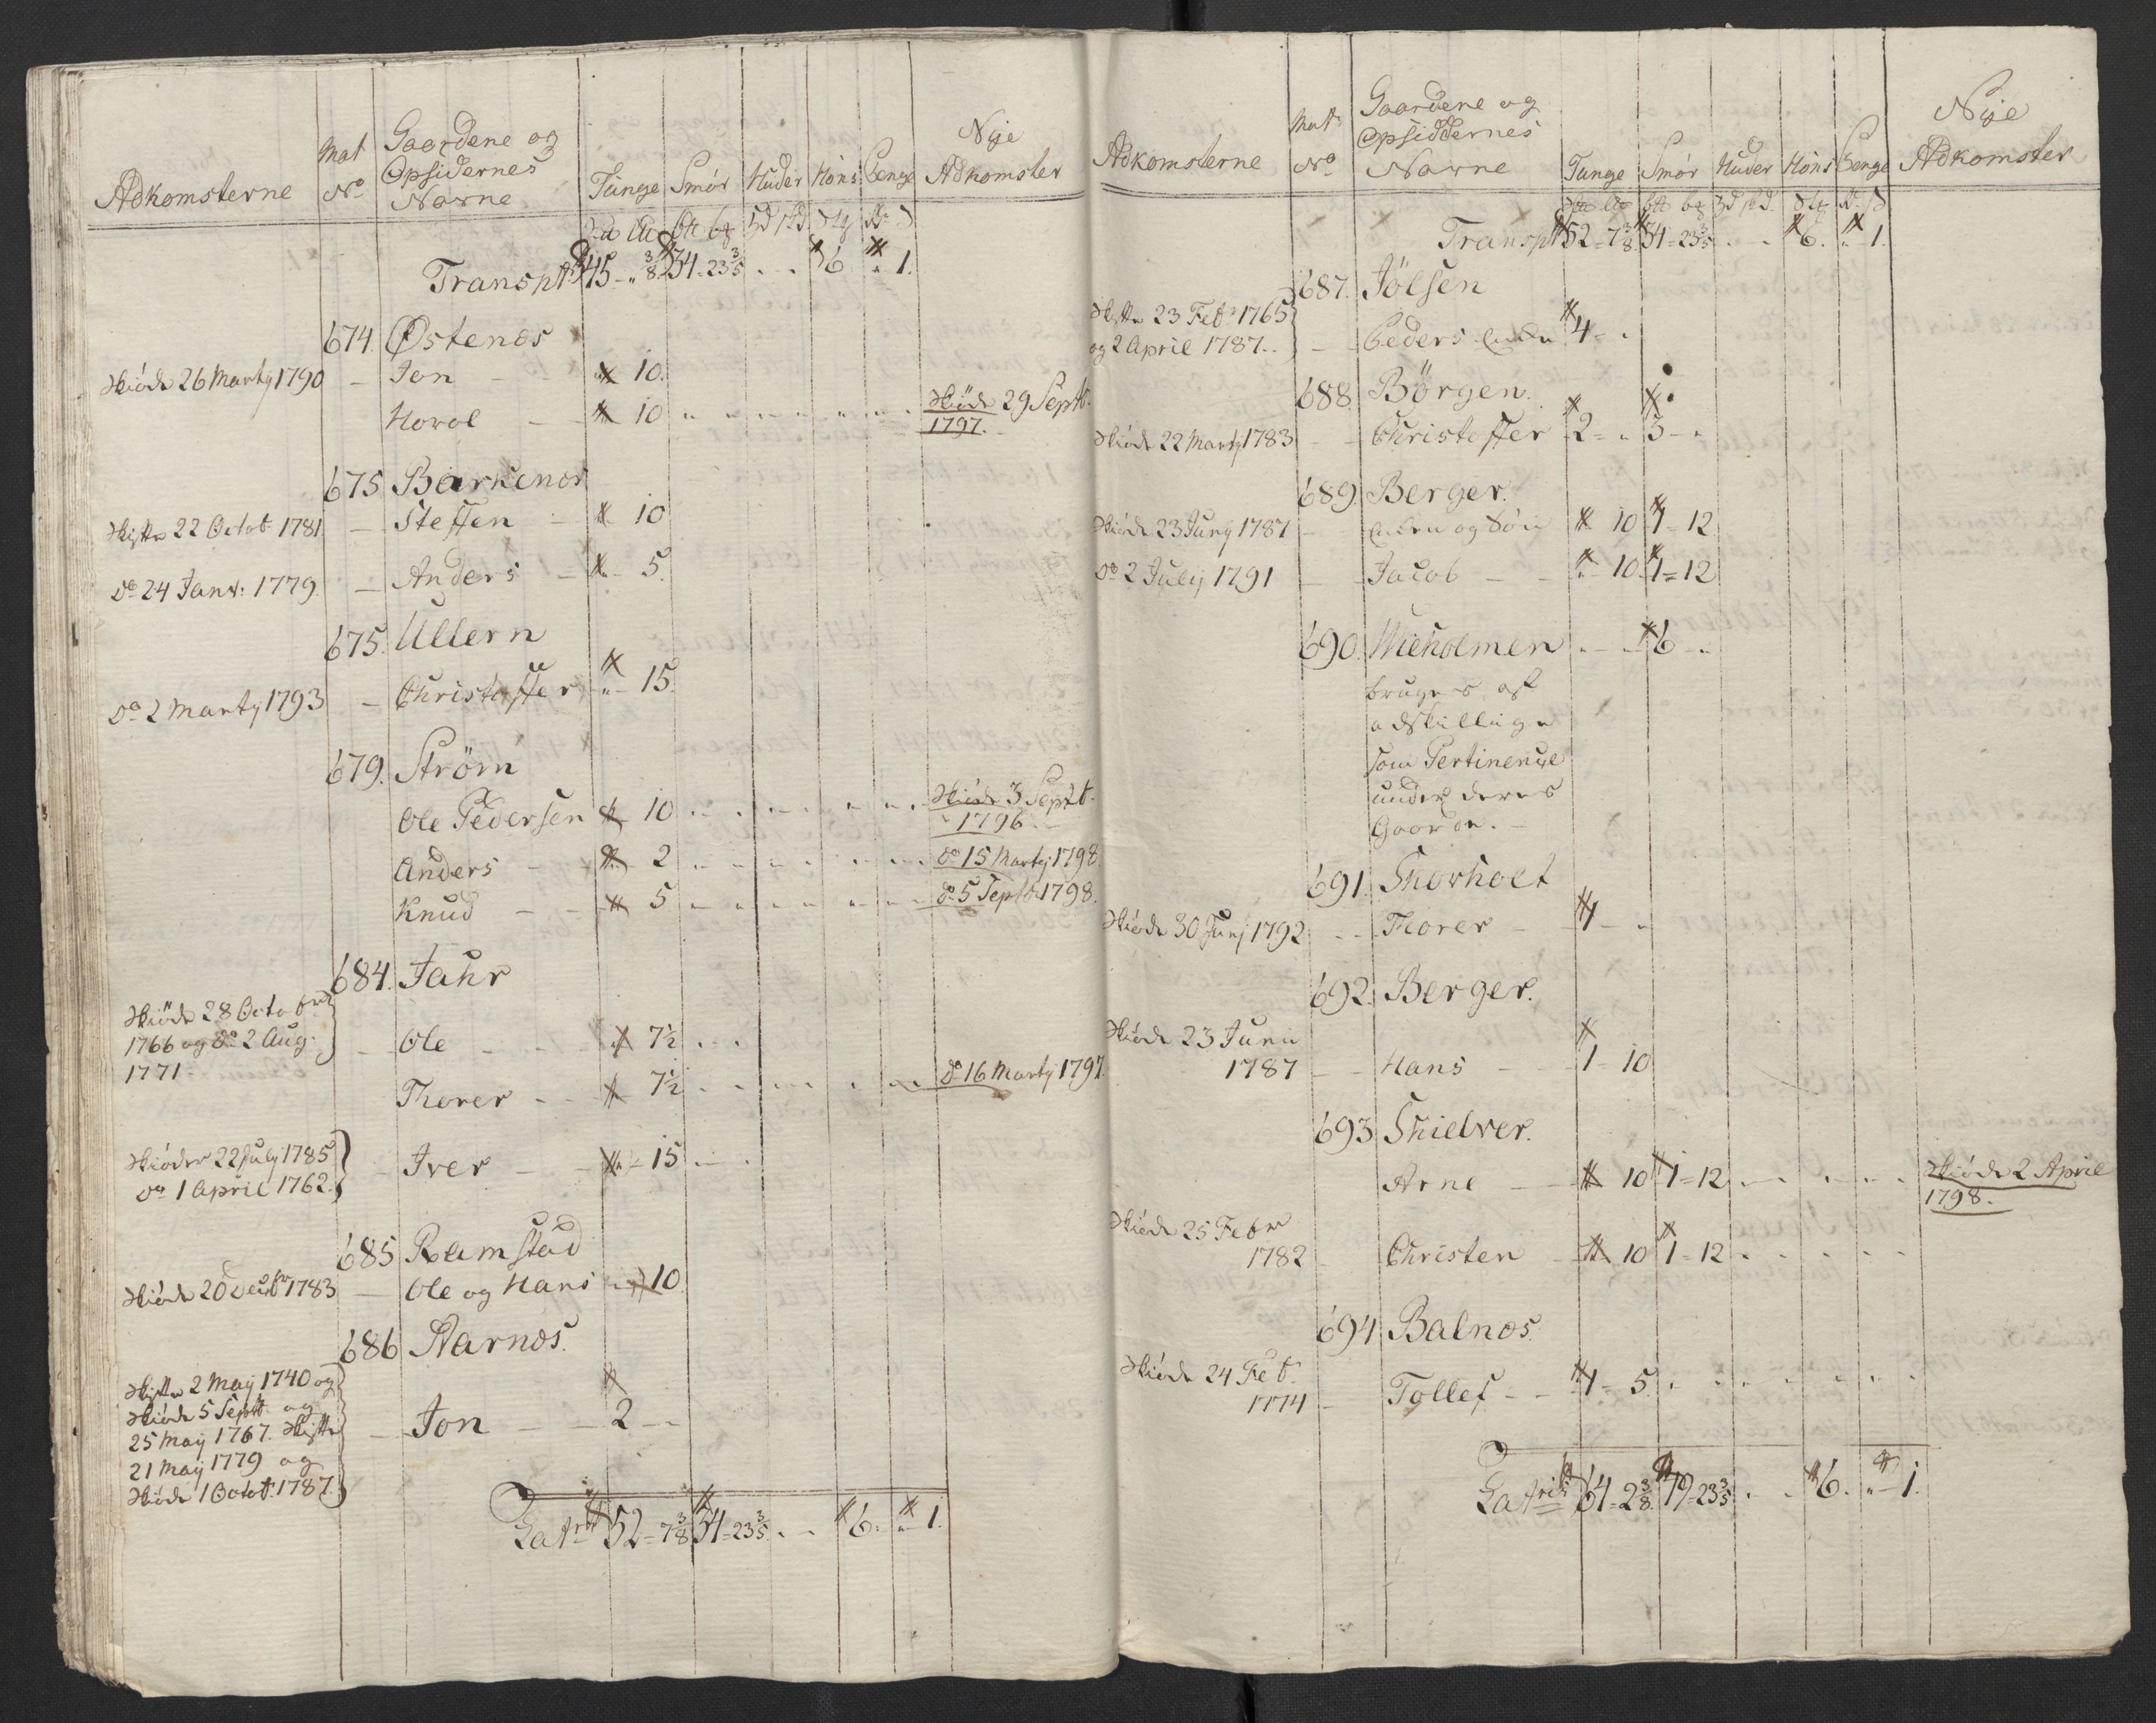 Adkomsterne | Mat No | Gaardene og Opsidernes Navne | Tunge | Smør | Huder | Høns | Penge | Nÿe Adkomster
Transpt 45 - " 3/8 | 34 - 23 3/5 | - - | 6 | " 1.
674. Østenæs
Skiøde 26 Martÿ 1790 – Jon – 10.
Horol – 10 Skiøde 29 Septb. 1797.
675 Barkenæs
Skifte 22 Octob 1781. – Steffen – 10
Do 24 Janv: 1779. – Anders – 5.
675. Ullern
Do 2 Martÿ 1793 – Christoffer – 15.
679. Ström
Ole Pedersen 10 Skiøde 3 Septb. 1796.
Anders – 2 do 15 Martÿ 1798
Knud – – 5 do 5 Septb 1798.
684. Jahr
Skiöde 28 Octobr
1766 og do 2 Aug.
1771. – Ole – 7½
Thorer – 7½ Do 16 Martÿ 1797.
Skiøder 22 Julÿ 1785
Do 1 April 1762. – Iver – 15
685 Ramstad
Skiøde 20 Decbr 1783 – Ole og Hans 10.
686 Aarnæs.
Skifte 2 Maÿ 1740 og
Skiøde 5 Septb. og
25 Maÿ 1767. Skifte
21 Maÿ 1779 og
Skiøde 1 Octob. 1787. – Jon – 2 –
Latus 52 - 7 3/8 | 34 - 23 3/5 | - - | 6. | " 1.
Adkomsterne | Mat No | Gaardene og Opsiddernes Navne | Tunge | Smør | Huder | Høns | Penge | Nÿe Adkomster
Transpt 52 - 7 3/8 | 34 - 23 3/5 | - - | 6. | " 1.
687. Jölsen
Skifte 23 Feb. 1765
og 2 April 1787. – Peders Enke 4 - "
688. Börgen.
Skiøde 22 Martÿ 1783 – Christoffer 2 - " 3 - "
689. Berger.
Skiøde 23 Junÿ 1787 – Enken og Søn 10 1 - 12
Do 2 Julÿ 1791 – Jacob – 10. 1 = 12
690. Mieholmen 6 - "
bruges af
adskillige
som Pertinentie
under deres
Gaarde. –
691. Skovholt
Skiøde 30 Junj 1792. – Thorer – 1 - "
692. Berger.
Skiøde 23 Junii
1787 – Hans – 1 - 10
693 Skielver.
Arne – 10 1 = 12 Skiøde 2 April
1798.
Skiøde 25 Febr
1782 – Christen – 10 1 - 12
694 Balnæs.
Skiøde 24 Feb.
1774 – Tollef – 1 - 5.
Latus 64 - 2 3/8. | 49 - 23 3/5 | - - | 6. | " - 1.